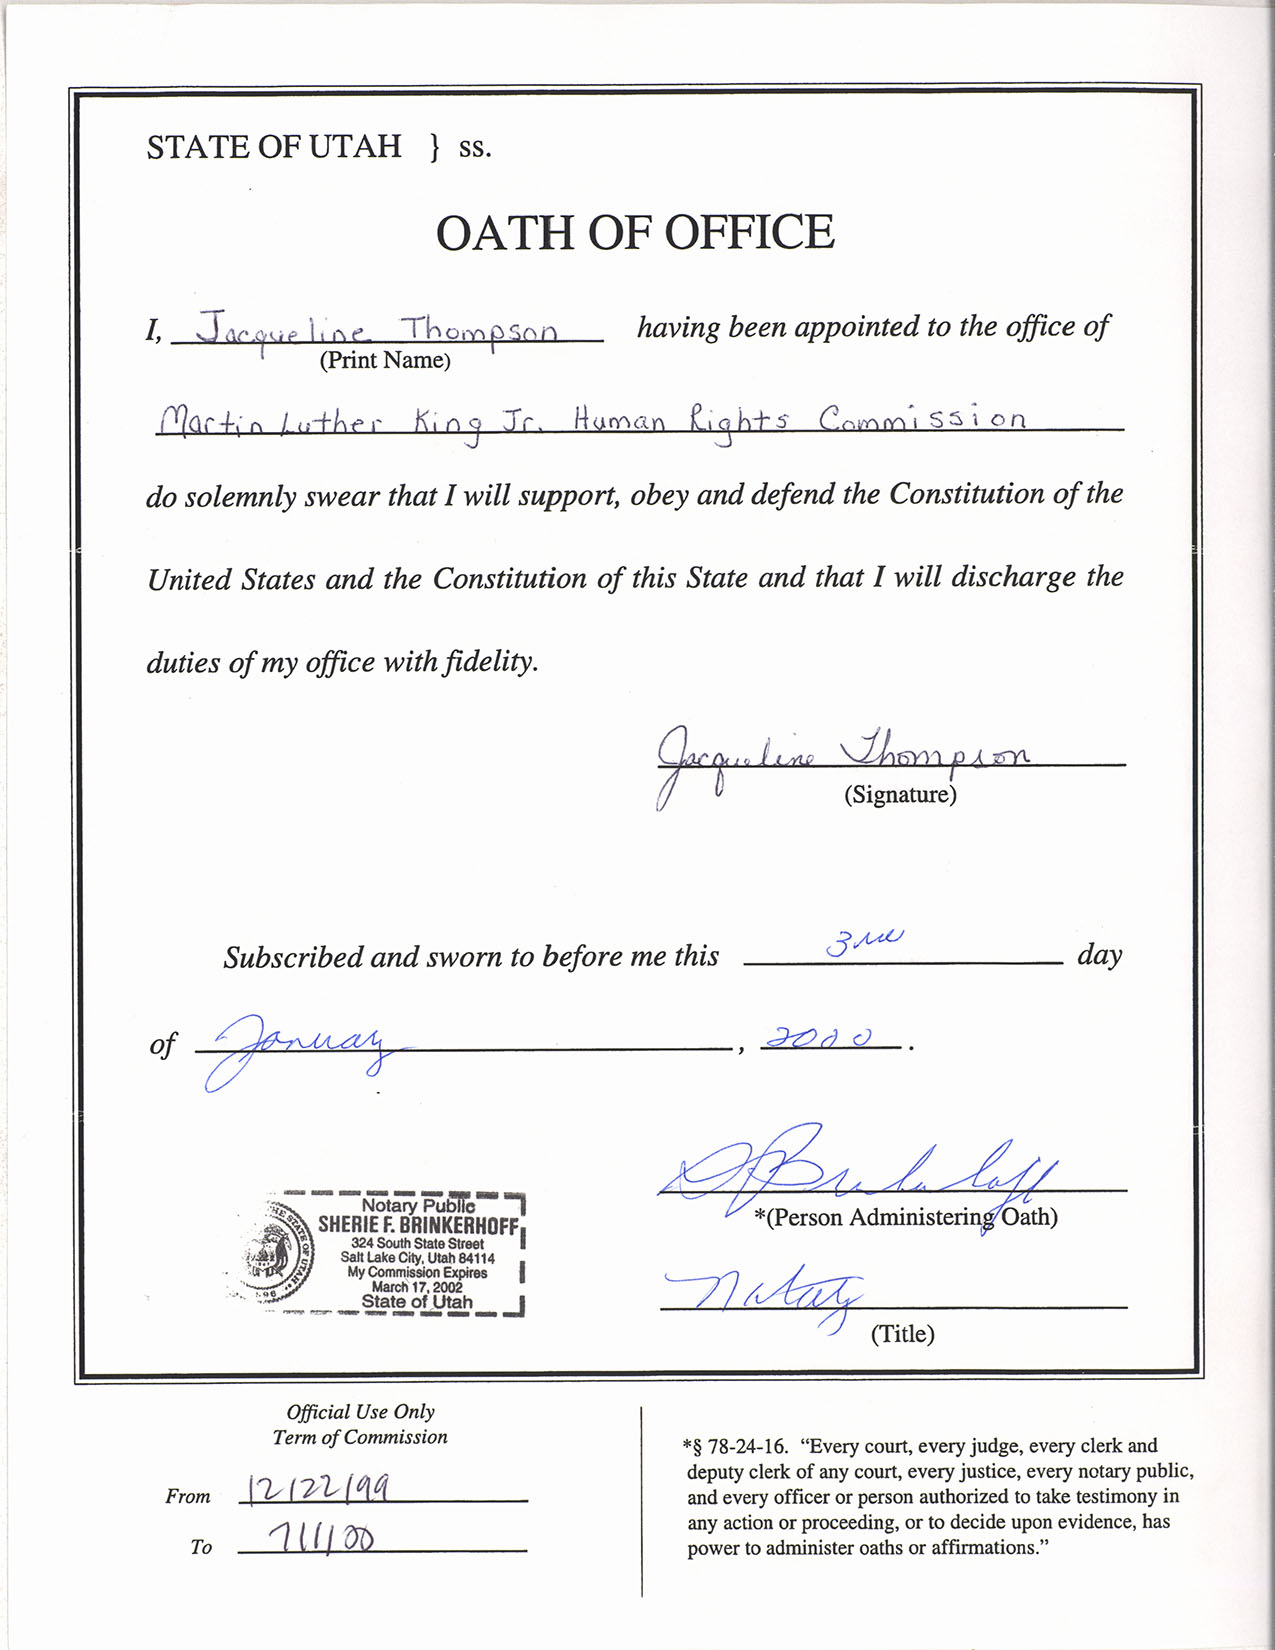 STATE OF UTAH } ss.
OATH OF OFFICE
I, Jacqueline Thompson having been appointed to the office of
(Print Name)
Martin Luther King Jr. Human Rights Commission
do solemnly swear that I will support, obey and defend the Constitution of the
United States and the Constitution of this State and that I will discharge the
duties of my office with fidelity.
Jacqueline Thompson
(Signature)
Subscribed and sworn to before me this 3rd day
of January, 2000.
S F Brinkerhoff
*(Person Administering Oath)
Notary
(Title)
THE STATE OF UTAH
Notary Public
SHERIE F. BRINKERHOFF
324 South State Street
Salt Lake City, Utah 84114
My Commission Expires
March 17, 2002
State of Utah
Official Use Only
Term of Commission
From 12/22/99
To 7/1/00
*§ 78-24-16. “Every court, every judge, every clerk and
deputy clerk of any court, every justice, every notary public,
and every officer or person authorized to take testimony in
any action or proceeding, or to decide upon evidence, has
power to administer oaths or affirmations.”